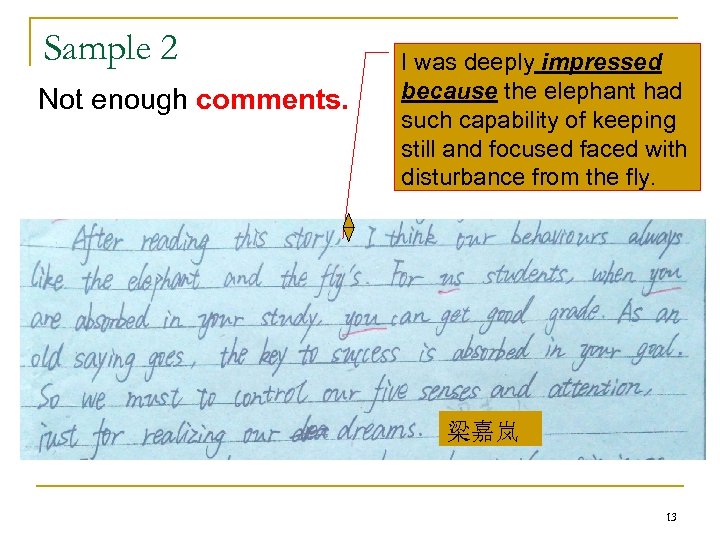 Sample 2
Not enough comments.
I was deeply impressed
because the elephant had
such capability of keeping
still and focused faced with
disturbance from the fly.
After reading this story, I think our behaviours always
like the elephant and the fly's. For us students, when you
are absorbed in your study, you can get good grade. As an
old saying goes, the key to success is absorbed in your goal.
So we must to control our five senses and attention,
just for realizing our dreams.
梁嘉岚
13